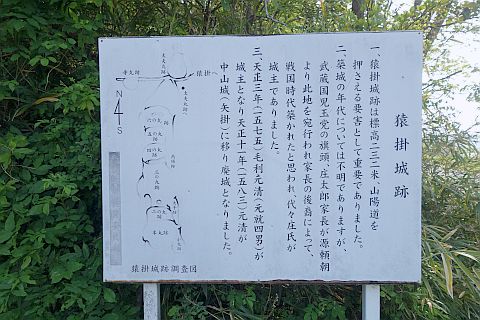 猿掛城跡
一、猿掛城跡は標高二三二米 山陽道を
押さえる要害として重要でありました。
二、築城の年代については不明でありますが、
武蔵国児玉党の旗頭、庄太郎家長が源頼朝
より此地を宛行われ家長の後裔によって、
戦国時代築かれたと思われ、代々庄氏が
城主でありました。
三、天正三年(一五七五)毛利元清(元就四男)が
城主となり天正十一年(一五八三)元清が
中山城(矢掛)に移り廃城となりました。
猿掛へ
太夫丸跡
寺丸跡
N
S
六の丸跡
五の丸跡
四の丸跡
三の丸跡
二の丸跡
本丸跡
猿掛城跡調査図